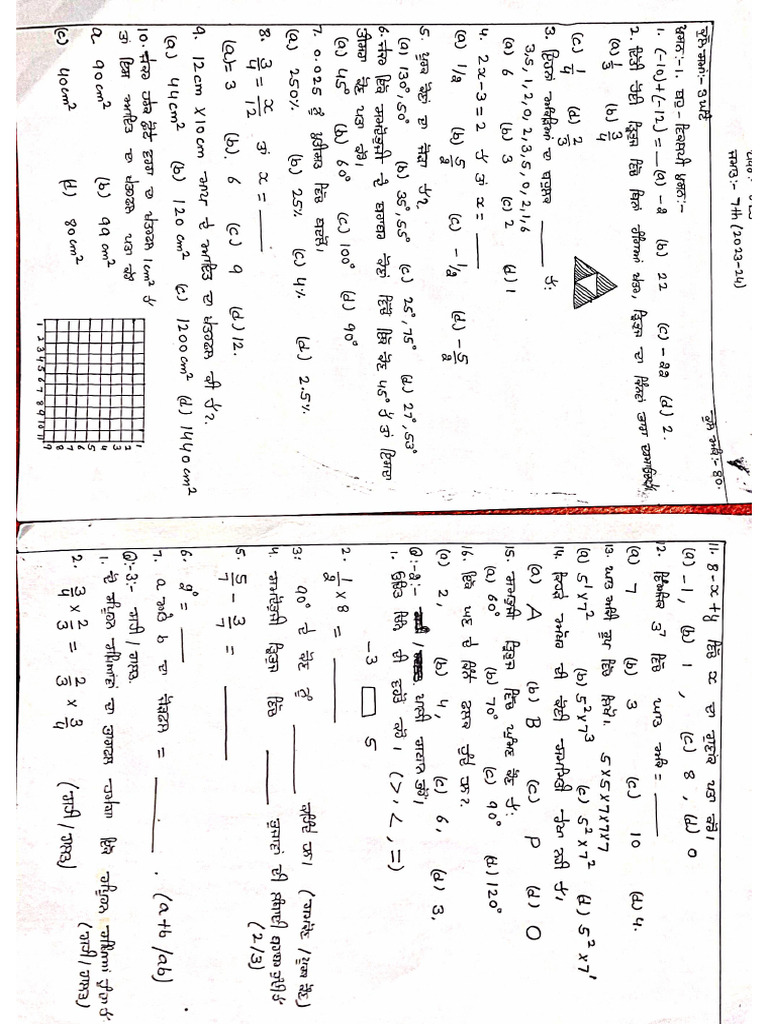 ਜਮਾਤ:- 7th (2023-24)
ਕੁੱਲ ਸਮਾਂ:- 3 ਘੰਟੇ ਕੁੱਲ ਅੰਕ:- 80.
ਪ੍ਰਸ਼ਨ:-1. ਬਹੁ-ਵਿਕਲਪੀ ਪ੍ਰਸ਼ਨ:-
1. (-10)+(-12)=__ (a) -2 (b) 22 (c) -22 (d) 2.
2. ਦਿੱਤੀ ਹੋਈ ਤ੍ਰਿਭੁਜ ਵਿੱਚ ਬਿਨਾਂ ਰੰਗਿਆਂ ਖੇਤਰ, ਤ੍ਰਿਭੁਜ ਦਾ ਕਿੰਨਵਾਂ ਭਾਗ ਦਰਸਾਉਂਦਾ
(a) 1/3 (b) 3/4
(c) 1/4 (d) 2/3
3. ਇਹਨਾਂ ਅੰਕੜਿਆਂ ਦਾ ਬਹੁਲਕ ____ ਹੈ:
3,5,1,2,0,2,3,5,0,2,1,6
(a) 6 (b) 3 (c) 2 (d) 1
4. 2x-3=2 ਹੈ ਤਾਂ x = ____
(a) 1/2 (b) 5/2 (c) -1/2 (d) -5/2
5. ਪੂਰਕ ਕੋਣਾਂ ਦਾ ਜੋੜਾ ਹੈ?
(a) 130°,50° (b) 35°,55° (c) 25°,75° (d) 27°,53°
6. ਜੇਕਰ ਇੱਕ ਸਮਦੋਭੁਜੀ ਦੇ ਬਰਾਬਰ ਕੋਣਾਂ ਵਿੱਚੋਂ ਇੱਕ ਕੋਣ 45° ਹੈ ਤਾਂ ਇਸਦਾ
ਤੀਸਰਾ ਕੋਣ ਪਤਾ ਕਰੋ।
(a) 45° (b) 60° (c) 100° (d) 90°
7. 0.025 ਨੂੰ ਪ੍ਰਤੀਸ਼ਤ ਵਿੱਚ ਬਦਲੋ।
(a) 250% (b) 25% (c) 4% (d) 2.5%
8. 3/4 = x/12 ਤਾਂ x = ____
(a) = 3 (b). 6 (c) 9 (d) 12.
9. 12cm x 10cm ਮਾਪ ਦੇ ਆਇਤ ਦਾ ਖੇਤਰਫਲ ਕੀ ਹੈ?
(a) 44cm² (b) 120cm² (c) 1200cm² (d) 1440cm²
10. ਜੇਕਰ ਹਰੇਕ ਛੋਟੇ ਵਰਗ ਦਾ ਖੇਤਰਫਲ 1cm² ਹੈ
ਤਾਂ ਇਸ ਆਇਤ ਦਾ ਖੇਤਰਫਲ ਪਤਾ ਕਰੋ
a. 90cm² (b) 99cm²
(c) 40cm² (d) 80cm²
1 2 3 4 5 6 7 8 9 10 11
1 2 3 4 5 6 7 8 9
11. 8-x+y ਵਿੱਚ x ਦਾ ਗੁਣਾਂਕ ਪਤਾ ਕਰੋ।
(a) -1, (b) 1, (c) 8, (d) 0
12. ਵਿਅੰਜਕ 3⁷ ਵਿੱਚ ਘਾਤ ਅੰਕ = ____
(a) 7 (b) 3 (c) 10 (d) 4.
13. ਘਾਤ ਅੰਕੀ ਰੂਪ ਵਿੱਚ ਲਿਖੋ। 5x5x7x7x7
(a) 5¹x7² (b) 5²x7³ (c) 5²x7² (d) 5²x7¹
14. ਕਿਹੜੇ ਅੱਖਰ ਦੀ ਕੋਈ ਸਮਮਿਤੀ ਰੇਖਾ ਨਹੀਂ ਹੈ,
(a) A (b) B (c) P (d) O
15. ਸਮਭੁਜੀ ਤ੍ਰਿਭੁਜ ਵਿੱਚ ਘੁੰਮਣ ਕੋਣ ਹੈ:
(a) 60° (b) 70° (c) 90° (d) 120°
16. ਇੱਕ ਘਣ ਦੇ ਕਿੰਨੇ ਫਲਕ ਹੁੰਦੇ ਹਨ?
(a) 2, (b) 4, (c) 6, (d) 3,
Q:-2:- ਖਾਲੀ ਸਥਾਨ ਭਰੋ।
1. ਉਚਿਤ ਚਿੰਨ੍ਹ ਦੀ ਵਰਤੋਂ ਕਰੋ। (>, <, =)
-3 □ 5
2. 1/2 x 8 = ____
3: 90° ਦੇ ਕੋਣ ਨੂੰ ____ ਕਹਿੰਦੇ ਹਨ। (ਸਮਕੋਣ / ਪੂਰਕ ਕੋਣ)
4. ਸਮਦੋਭੁਜੀ ਤ੍ਰਿਭੁਜ ਵਿੱਚ ____ ਭੁਜਾਵਾਂ ਦੀ ਲੰਬਾਈ ਬਰਾਬਰ ਹੁੰਦੀ ਹੈ
(2/3)
5. 5/7 - 3/7 = ____
6. 2° = ____
7. a ਅਤੇ b ਦਾ ਜੋੜਫਲ = ____. (a+b /ab)
Q:-3:- ਸਹੀ / ਗਲਤ.
1. ਦੋ ਸੰਪੂਰਨ ਸੰਖਿਆਵਾਂ ਦਾ ਭਾਗਫਲ ਹਮੇਸ਼ਾ ਇੱਕ ਸੰਪੂਰਨ ਸੰਖਿਆ ਹੁੰਦਾ ਹੈ
(ਸਹੀ / ਗਲਤ)
2. 3/4 x 2/3 = 2/3 x 3/4 (ਸਹੀ / ਗਲਤ)